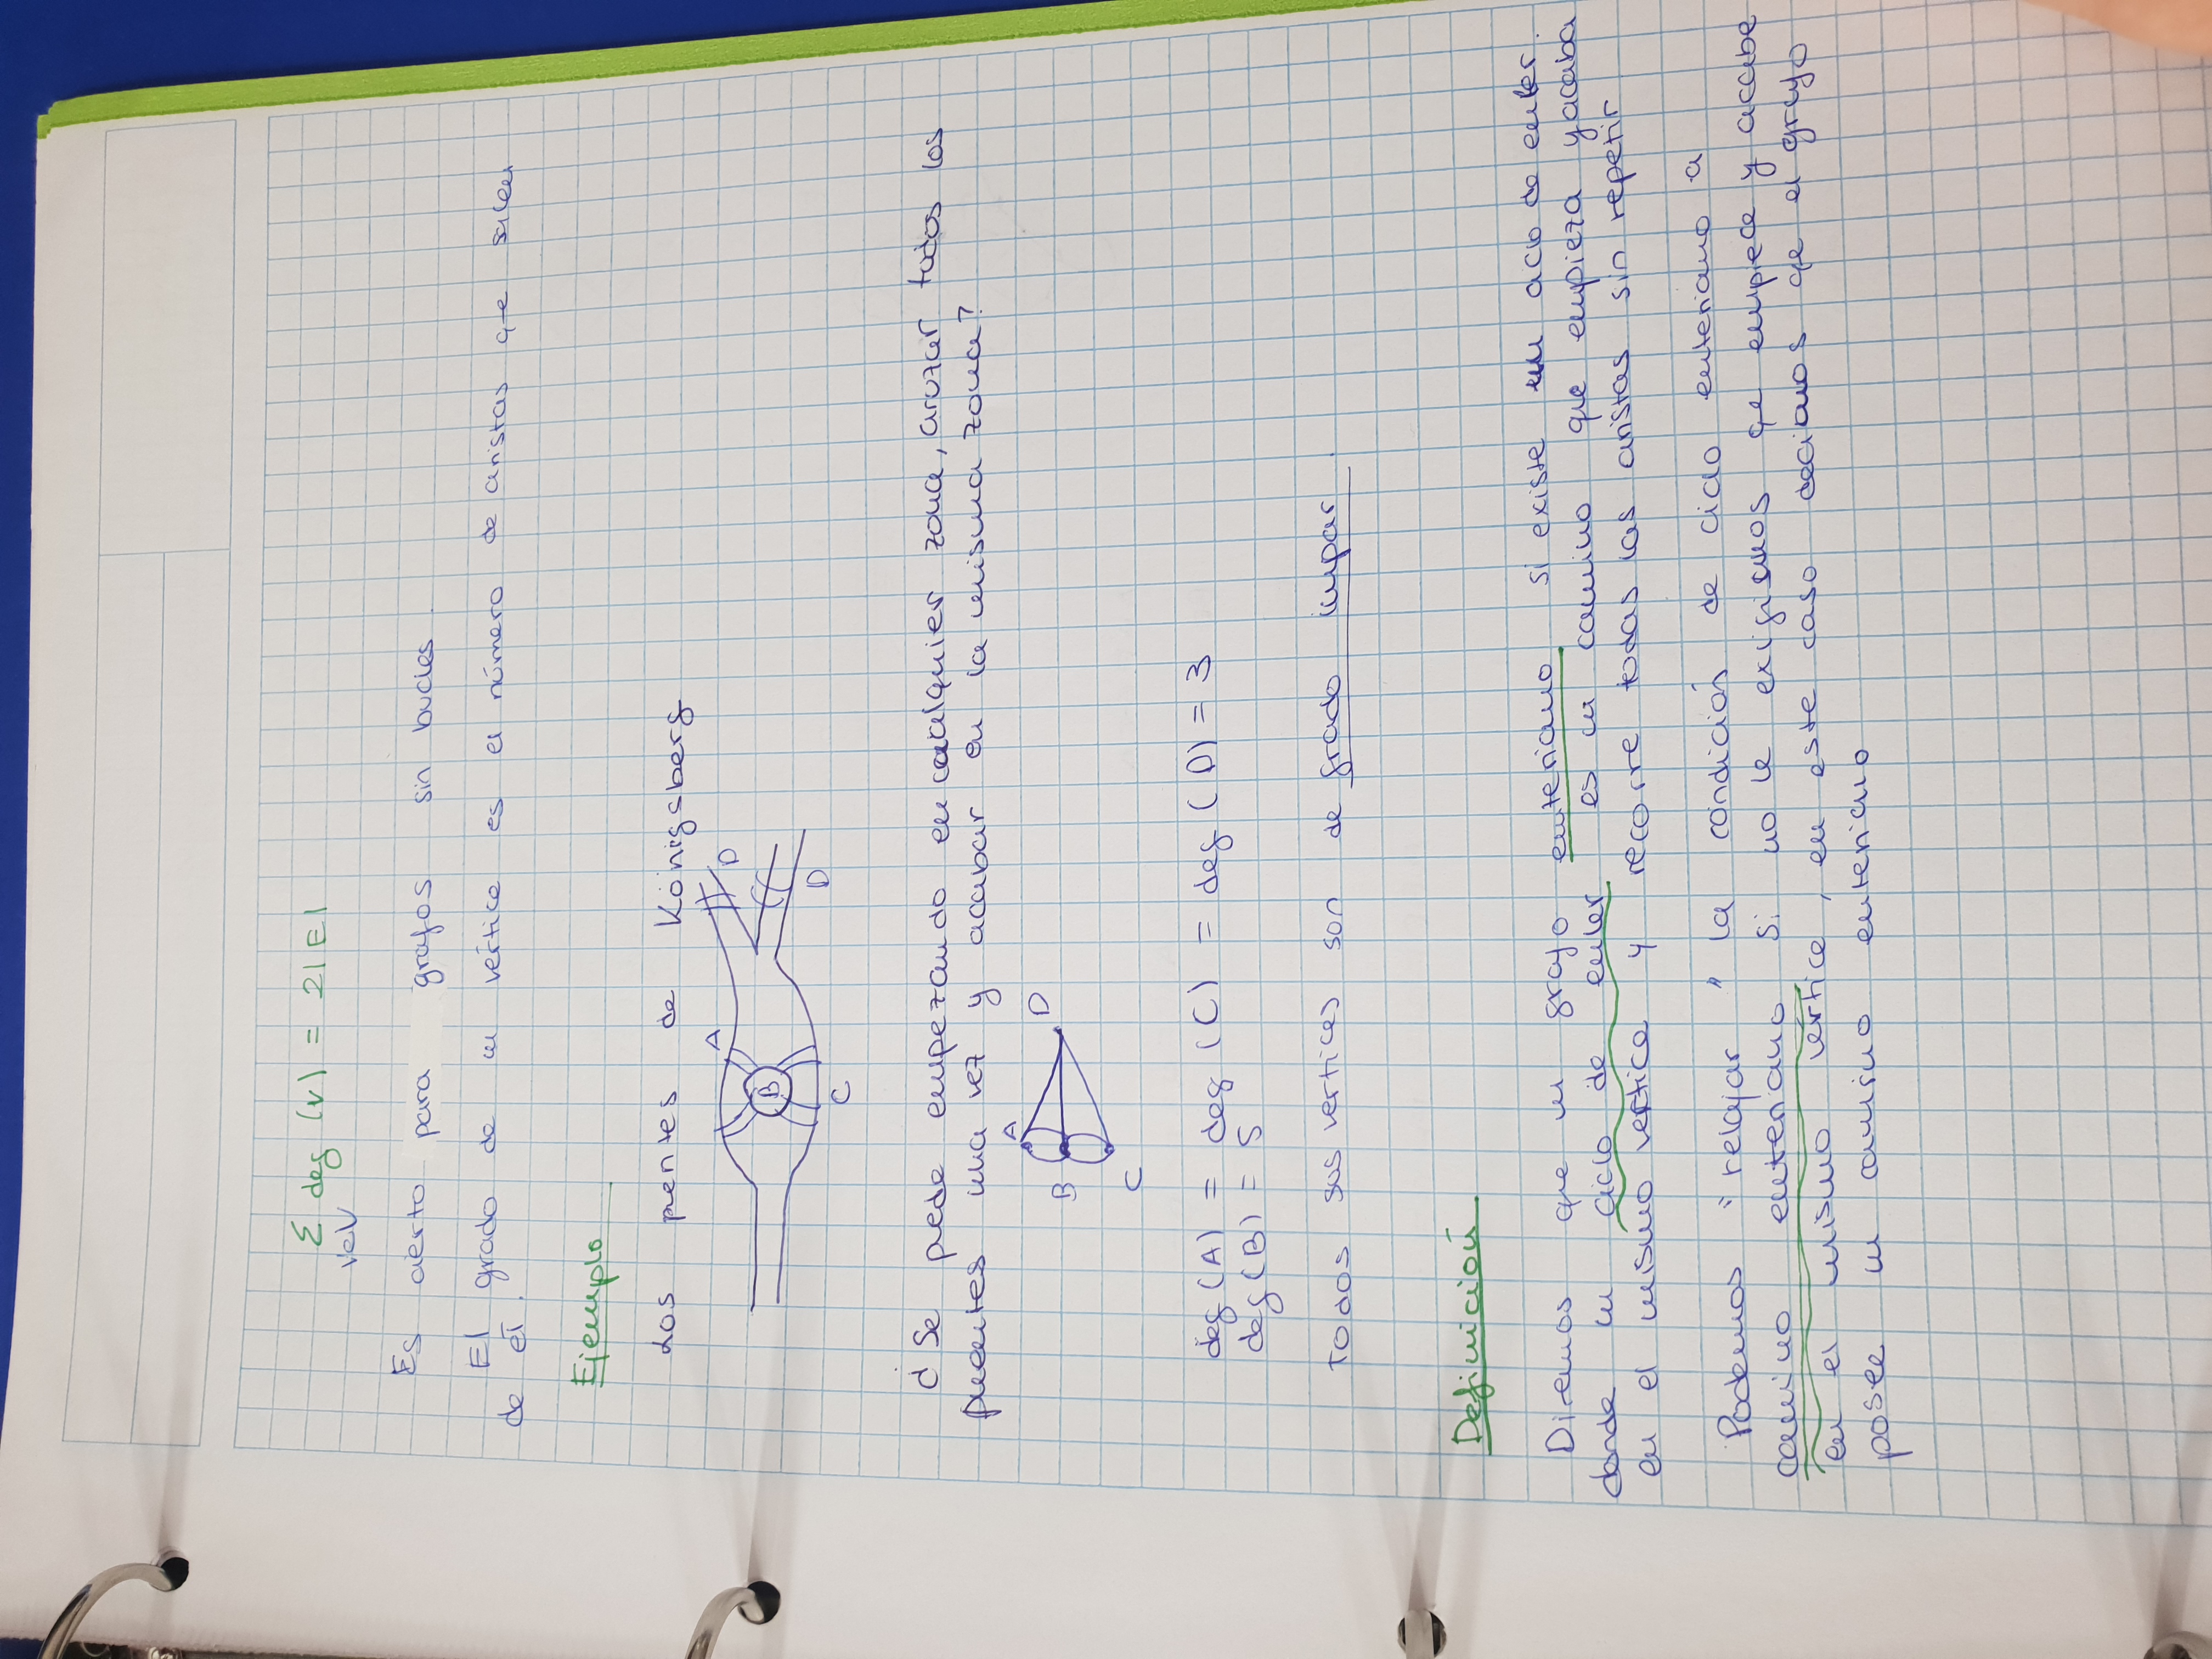 Σ deg (v) = 2|E|
v∈V
Es cierto para grafos sin bucles
El grado de un vértice es el número de aristas que salen
de él.
Ejemplo
Los puentes de Königsberg
A
D
B
D
C
¿ Se puede empezando en cualquier zona, cruzar todos los
puentes una vez y acabar en la misma zona?
A
D
B
C
deg (A) = deg (C) = deg (D) = 3
deg (B) = 5
Todos sus vertices son de grado impar.
Definición
Diremos que un grafo euleriano si existe un ciclo de euler.
donde un ciclo de euler es un camino que empieza y acaba
en el mismo vertice y recorre todas las aristas sin repetir
Podemos "relajar" la condición de ciclo euleriano a
camino euleriano si no le exigimos que empiece y acabe
en el mismo vértice, en este caso decimos que el grafo
posee un camino euleriano